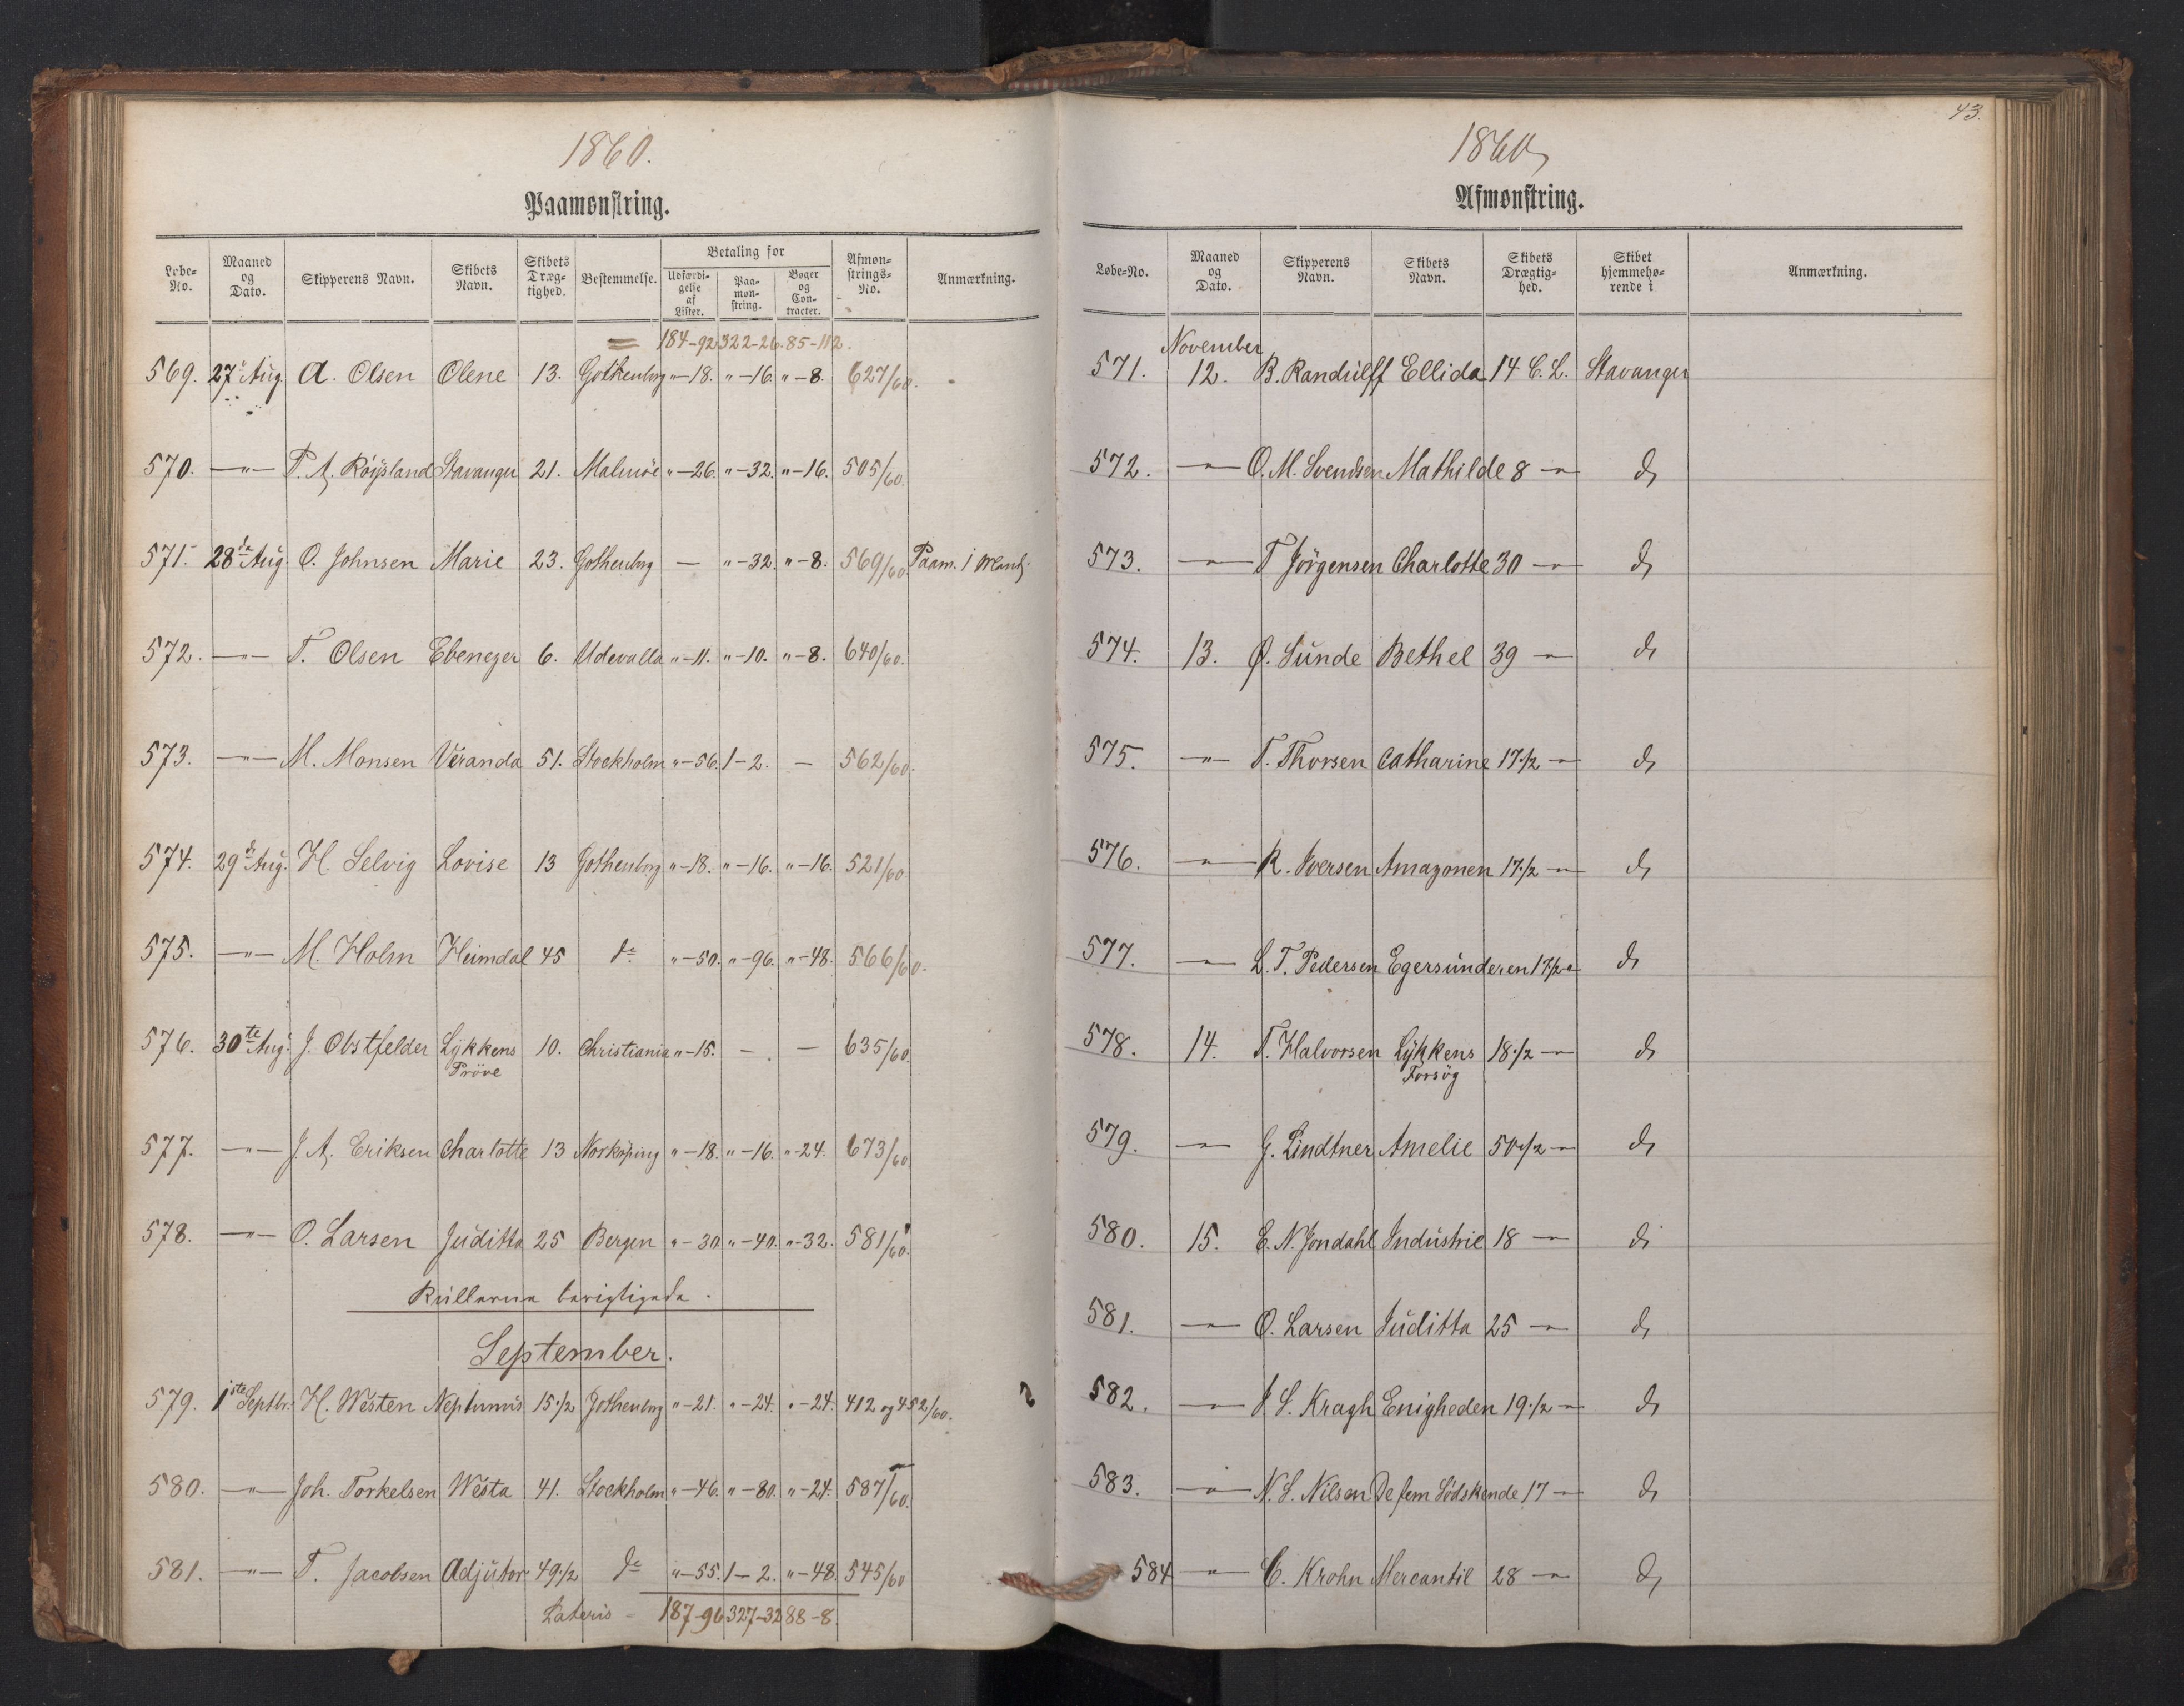 1860.
Paamønstring.
Løbe-No. Maaned og Dato. Skipperens Navn. Skibets Navn. Skibets Dræg-tighed. Bestemmelse. Betaling for Udfærdi-gelse af Lister. Paa-møn-string. Bøger og Con-tracter. Afmøn-strings-No. Anmærkning.
184-92 322-26. 85-112.
569. 27de Aug A. Olsen Olene 13. Gothenborg "-18. "-16. "-8. 627/60.
570. -"- P. A. Röysland Stavanger 21. Malmöe "-26. "-32. "-16. 505/60.
571. 28de Aug. O. Johnsen Marie 23. Gothenborg — "-32. "-8. 569/60. Paam. 1 Mand.
572. -"- T. Olsen Ebenezer 6. Udevalla "-11. "-10. "-8. 640/60.
573. -"- M. Monsen Veranda 51. Stockholm "-56. 1-2. — 562/60.
574. 29de Aug. H. Selvig Lovise 13 Gothenborg "-18. "-16. "-16. 521/60
575. -"- M. Holm Heimdal 45 do "-50. "-96. "-48. 566/60.
576. 30te Aug. J. Obstfelder Lykkens Pröve 10. Christiania "-15. — — 635/60
577. -"- J. A. Eriksen Charlotte 13 Norköping "-18. "-16. "-24. 673/60
578. -"- O. Larsen Juditta 25 Bergen "-30 "-40. "-32. 581/60.
Rullerne berigtigede.
September.
579. 1ste Septbr. H. Westen Neptunus 15 1/2 Gothenborg "-21. "-24. "-24. 412 og 452/60.
580. -"- Joh. Torkelsen Westa 41. Stockholm "-46. "-80. "-24. 587/60.
581. -"- T. Jacobsen Adjutor 49 1/2 do "-55. 1-2. "-48. 545/60
Lateris - 187-96 327-32 88-8.
43.
1860,
Afmønstring.
Løbe-No. Maaned og Dato. Skipperens Navn. Skibets Navn. Skibets Drægtig-hed. Skibet hjemmehø-rende i Anmærkning.
November
571. 12. B. Randulff Ellida 14 C. L. Stavanger
572. -"- O. M. Svendsen Mathilde 8 -"- do
573. -"- T Jörgensen Charlotte 30 -"- do
574. 13. O. Sunde Bethel 39 -"- do
575. -"- T. Thorsen Catharine 17 1/2 -"- do
576. -"- R. Iversen Amazonen 17 1/2 -"- do
577. -"- L. T. Pedersen Egersunderen 17 1/2 -"- do
578. 14. T. Halvorsen Lykkens Forsög 18 1/2 -"- do
579. -"- G. Lindtner Amelie 50 1/2 -"- do
580. 15. E. N. Jondahl Industrie 18 -"- do
581. -"- O. Larsen Juditta 25 -"- do
582. -"- J. S. Kragh Enigheden 19 1/2 -"- do
583. -"- N. S. Nilsen De fem Södskende 17 -"- do
584 -"- C. Krohn Mercantil 28 -"- do